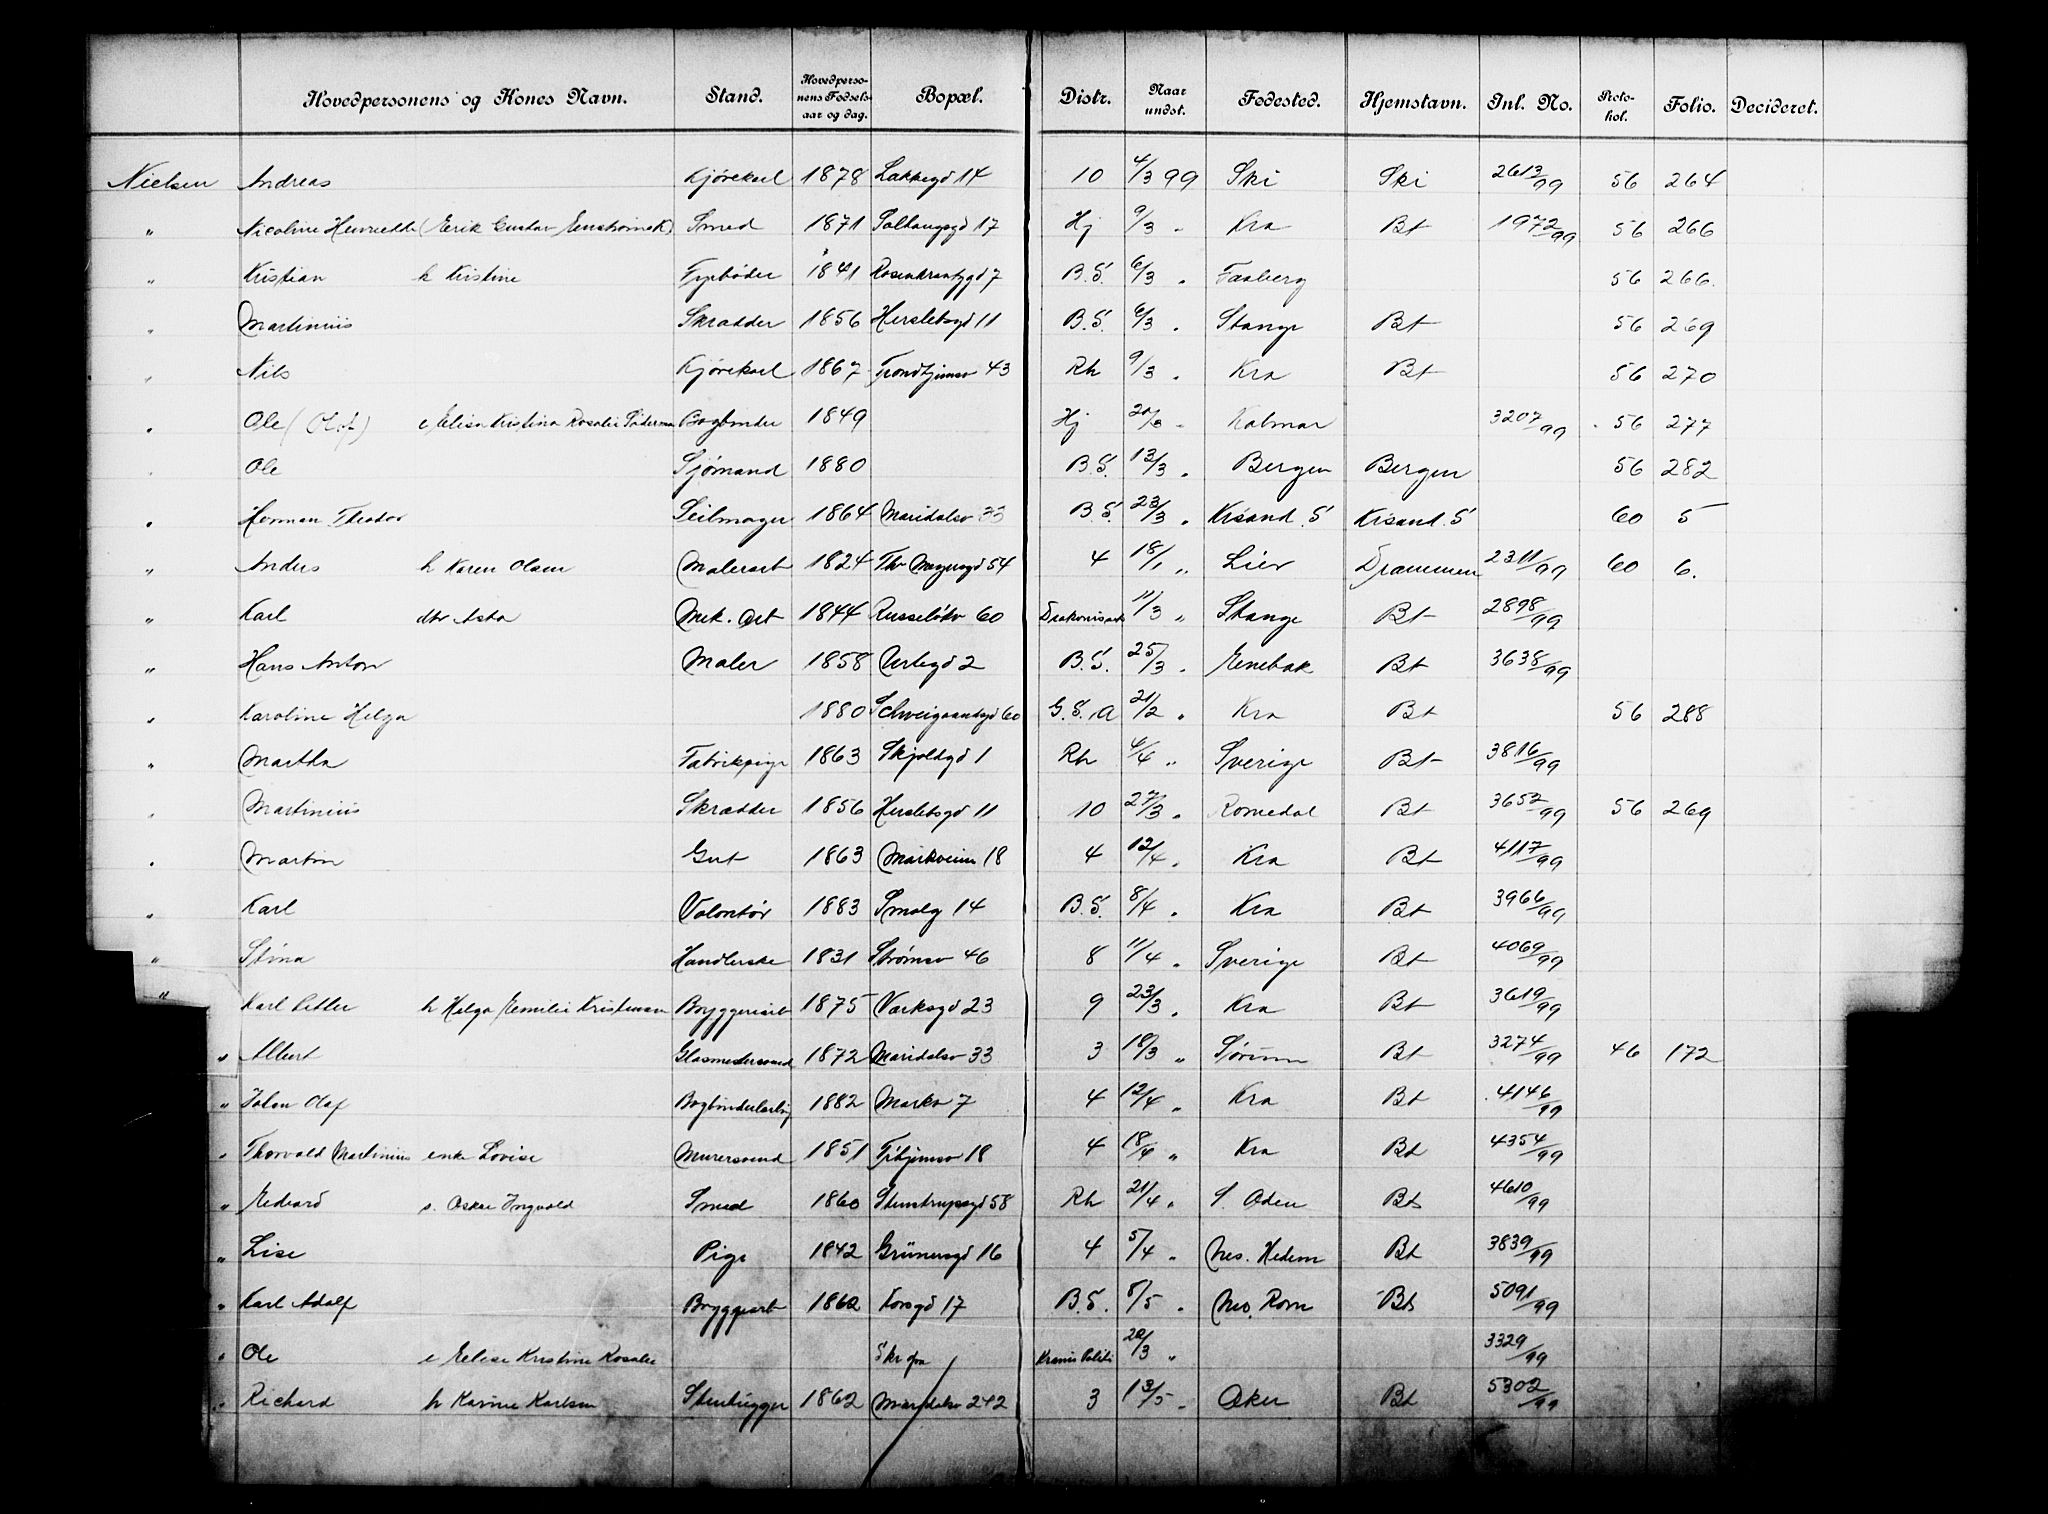 Hovedpersonens og Kones Navn. Stand. Hovedpersonens Fødselsaar og dag. Bopæl. Distr. Naar undst. Fødested. Hjemstavn. Inl. No. Protokol. Folio. Decideret.
Nielsen Andreas Kjørekarl 1878 Lakkegd 14 10 4/3 99 Ski Ski 2613/99 56 264
" Nicoline Henriette (Erik Gustav K) Smed 1871 17 Hj 9/3 " Kra Bt 1972/99 56 266
" Kristian h Kristine Fyrbøder 1841 Rosenkrantzgd 7 B.S. 6/3 " Faaberg 56 266.
" Martinius Skrædder 1856 Herslebsgd 11 B.S. 6/3 " Stange Bt 56 269
" Nils Kjørekarl 1867 Trondhjemsv 43 Rh 9/3 " Kra Bt 56 270
" Ole (Olof) e Elisa Kristina Rosalie Bogbinder 1849 Hj " Kalmar 3207/99 56 277
" Ole Sjømand 1880 B.S. 13/3 " Bergen Bergen 56 282
" Herman Theodor Seilmager 1864 Maridalsv 33 B.S. 23/3 " Krsand. S Krsand. S 60 5
" Anders h Karen Olsen Malerarb 1824 Thv Meyersgd 54 4 18/1 " Lier Drammen 2311/99 60 6.
" Karl dtr Asta Mek. Arb 1844 Russeløkv 60 11/3 " Stange Bt 2898/99
" Hans Anton Maler 1858 Urtegd 2 B.S. 25/3 " Enebak Bt 3638/99
" Karoline Helga 1880 Schweigaardsgd 60 G.S. A 21/2 " Kra Bt 56 288
" Martha Fabrikpige 1863 Skjoldsgd 1 Rh 4/4 " Sverige Bt 3816/99
" Martinius Skrædder 1856 Herslebsgd 11 10 27/3 " Romedal Bt 3652/99 56 269
" Martin Gut 1863 Markveien 18 4 12/4 " Kra Bt 4117/99
" Karl Volontør 1883 Smalg 14 B.S. 8/4 " Kra Bt 3966/99
" Stina Handlerske 1831 Strømsv 46 8 11/4 " Sverige Bt 4069/99
" Karl Petter h Helga Emilie Kristensen Bryggeriarb 1875 Verksgd 23 9 23/3 " Kra Bt 3619/99
" Albert Glasmestersvend 1872 Maridalsv 33 3 18/3 " Sørum Bt 3274/99 46 172
" Johan Olaf 1882 Markv 7 4 12/4 " Kra Bt 4146/99
" Thorvald Martinius enke Lovise Murersvend 1851 Tjhjemsv 18 4 18/4 " Kra Bt 4354/99
" Edvard s. Oskar Ingvald Smed 1860 Stenstrupsgd 58 Rh 21/4 " S. Oden Bt 4610/99
" Lise Pige 1842 Grünersgd 16 4 5/4 " Nes. Hedem Bt 3839/99
" Karl Adolf Bryggearb 1862 Korsgd 17 B.S. 8/5 " Nes. Rom Bt 5091/99
" Ole e Elise Kristine Rosalie Skr fra Kranis Politi 20/3 " 3329/99
" Richard h Karine Karlsen Stenhugger 1862 Maridalsv 242 3 13/5 " Aker Bt 5302/99